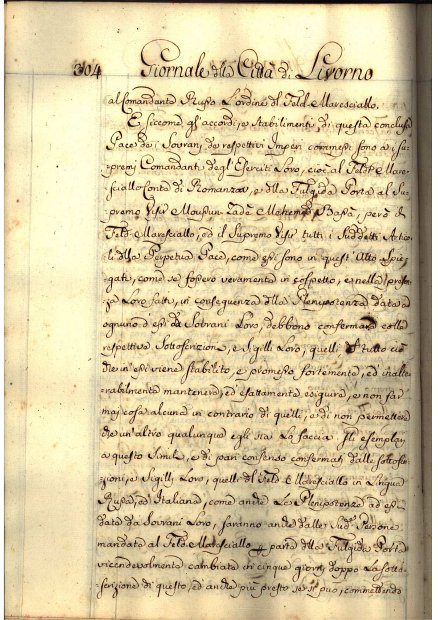 304 Giornale della Città di Livorno
al Comandante Russo L'ordine del Feld-Maresciallo.
E siccome gl'accordi, e stabilimenti, di questa conclusa
Pace dai Sovrani de respettivi Imperi commessi sono a i su-
premi Comandanti degl'Eserciti Loro, cioè al Feld-Mare-
sciallo Conte di Romanzow, e della Fulgida Porta al Su-
premo Visir Moussun Zadè Mehemed Bassà, però il
Feld-Maresciallo, ed il Supremo Visir tutti i suddetti Artico-
li della Perpetua Pace, come essi sono in quest'Atto spie-
gati, come se fossero veramente in cospetto, e nella presen-
za Loro fatti, in conseguenza della Plenipotenza data ad
ognuno d'essi da Sovrani Loro, debbono confermare colla
respettiva Sottoscrizione, e Sigilli Loro, quelli e tutto ciò
che in essi viene stabilito, e promesso fortemente, ed inalte-
rabilmente mantenere, ed esattamente eseguire, e non far
mai cosa alcuna in contrario di quelli, e di non permettere
che un'altro qualunque egli sia La faccia Gli esemplari
a questo Simili, e di pari consenso confermati dalle sottoscri-
zioni, e Sigilli Loro, quelli del Feld-Maresciallo in Lingua
Russa, ed Italiana, come anche Le Plenipotenze ad essi
date da Sovrani Loro, saranno anche dalle Sudd. Persone
mandate al Feld-Maresciallo parte della Fulgida Porta
vicendevolmente cambiate in cinque giorni doppo La sotto-
scrizione di questo, ed anche più presto se si può, commettendo